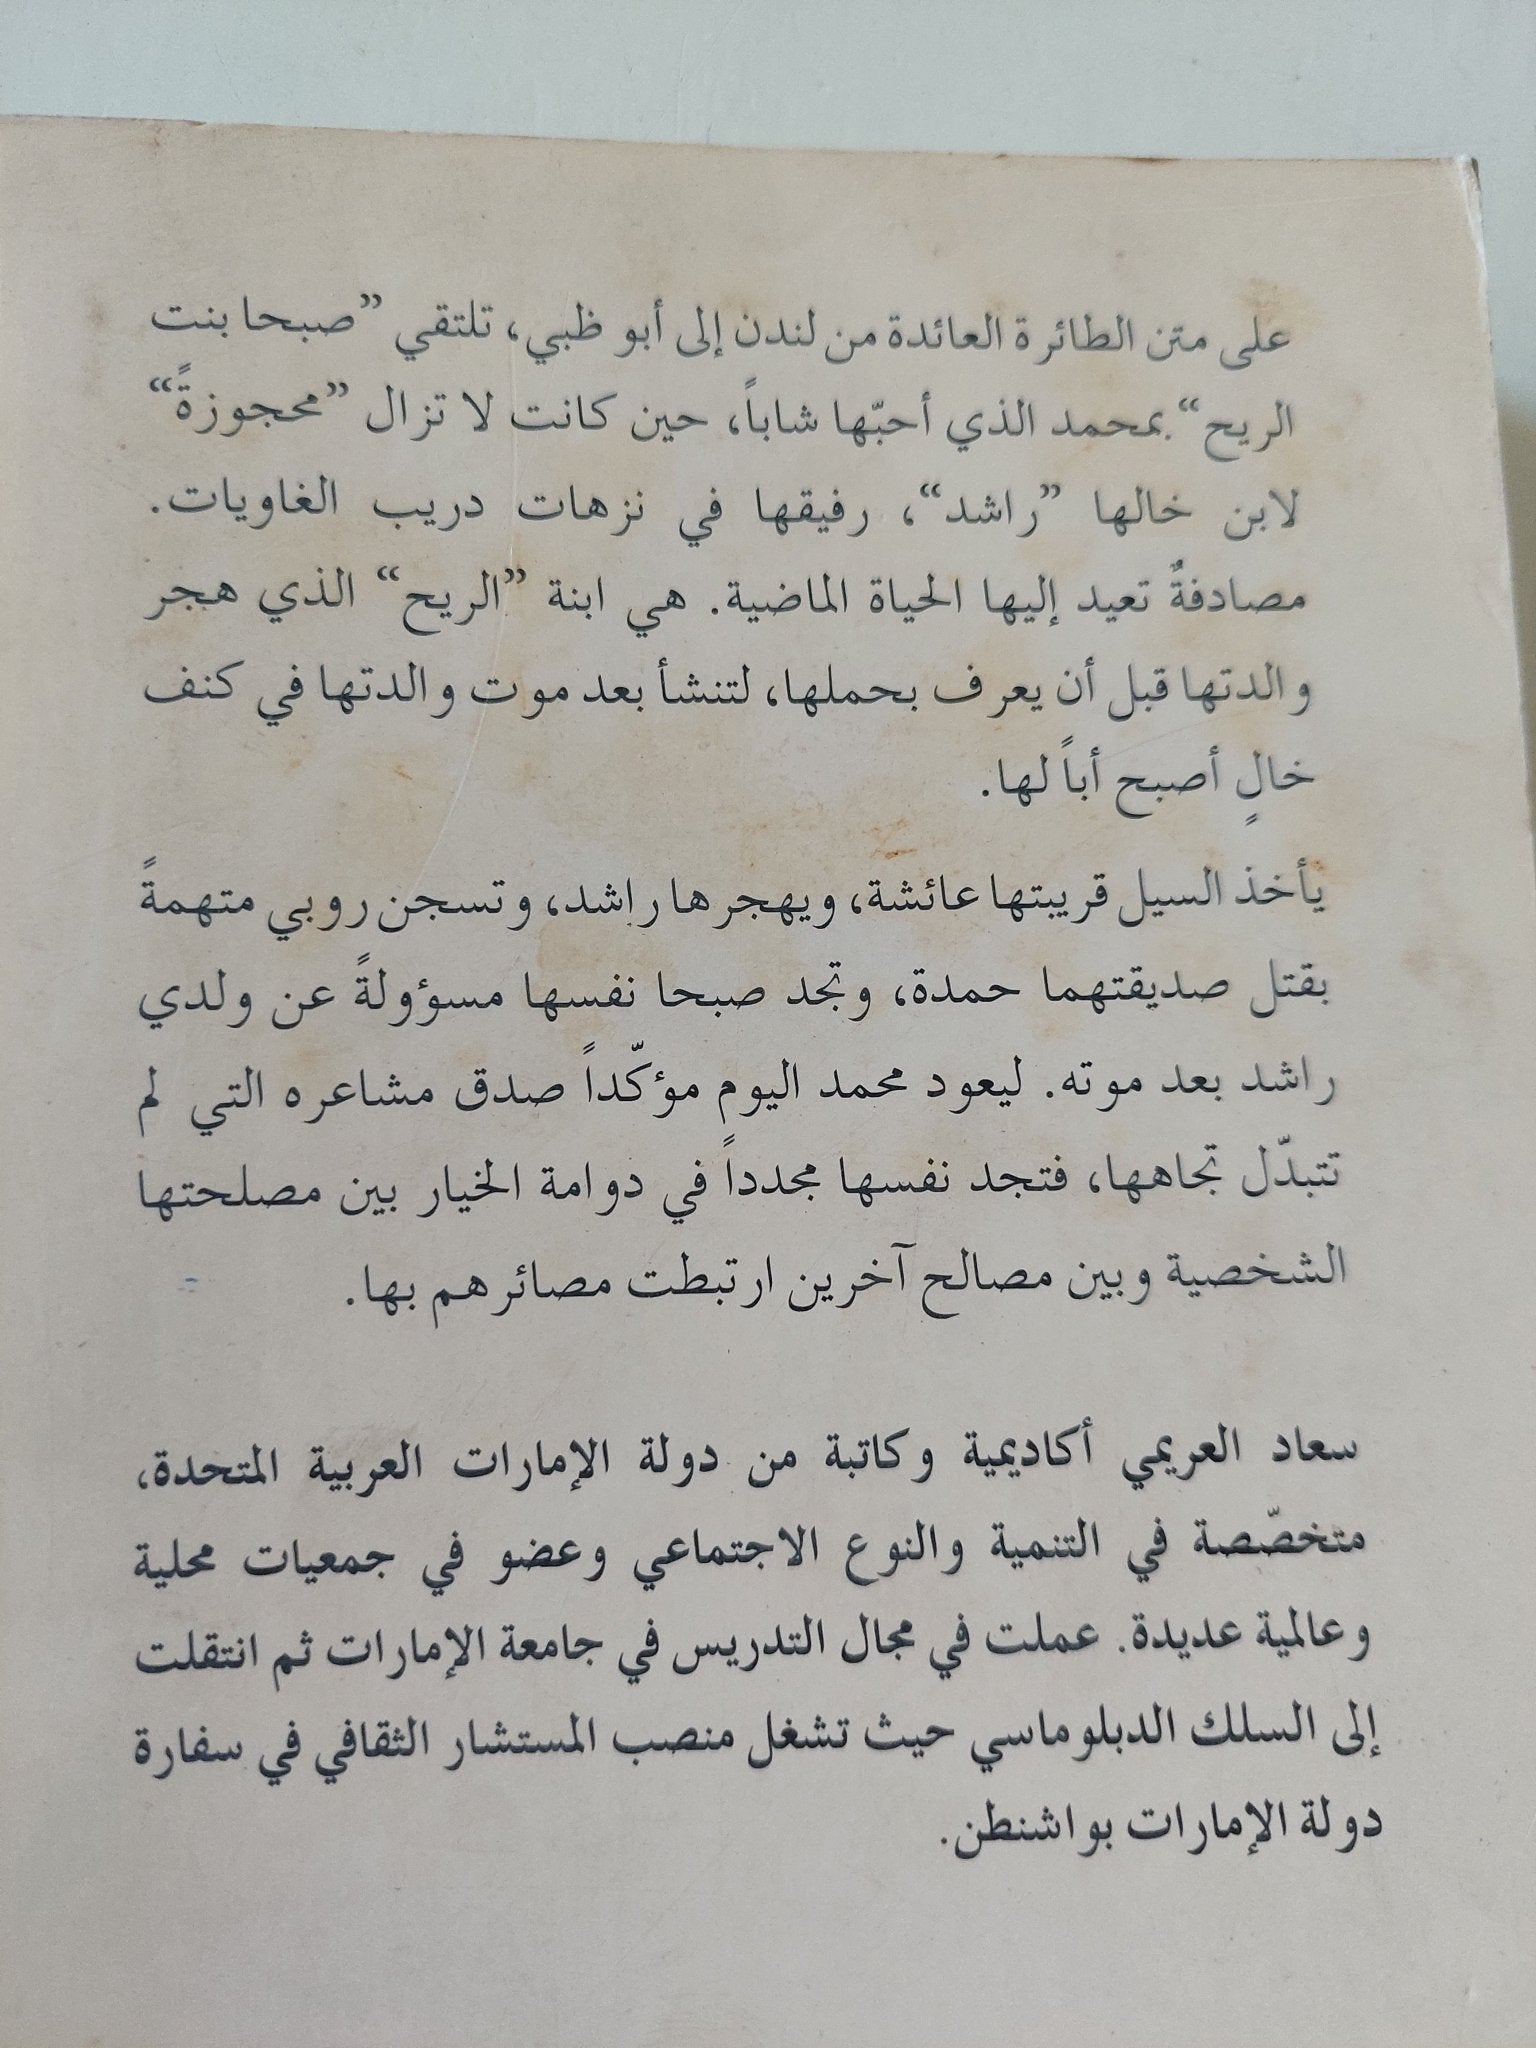 على متن الطائرة العائدة من لندن إلى أبو ظبي، تلتقي ”صبحا بنت
الريح“ بمحمد الذي أحبّها شاباً، حين كانت لا تزال ”محجوزةً“
لابن خالها ”راشد“، رفيقها في نزهات دريب الغاويات.
مصادفةٌ تعيد إليها الحياة الماضية. هي ابنة ”الريح“ الذي هجر
والدتها قبل أن يعرف بحملها، لتنشأ بعد موت والدتها في كنف
خالٍ أصبح أباً لها.
يأخذ السيل قريبتها عائشة، ويهجرها راشد، وتسجن روبي متهمةً
بقتل صديقتهما حمدة، وتجد صبحا نفسها مسؤولةً عن ولدي
راشد بعد موته. ليعود محمد اليوم مؤكّداً صدق مشاعره التي لم
تتبدّل تجاهها، فتجد نفسها مجدداً في دوامة الخيار بين مصلحتها
الشخصية وبين مصالح آخرين ارتبطت مصائرهم بها.
سعاد العريمي أكاديمية وكاتبة من دولة الإمارات العربية المتحدة،
متخصّصة في التنمية والنوع الاجتماعي وعضو في جمعيات محلية
وعالمية عديدة. عملت في مجال التدريس في جامعة الإمارات ثم انتقلت
إلى السلك الدبلوماسي حيث تشغل منصب المستشار الثقافي في سفارة
دولة الإمارات بواشنطن.